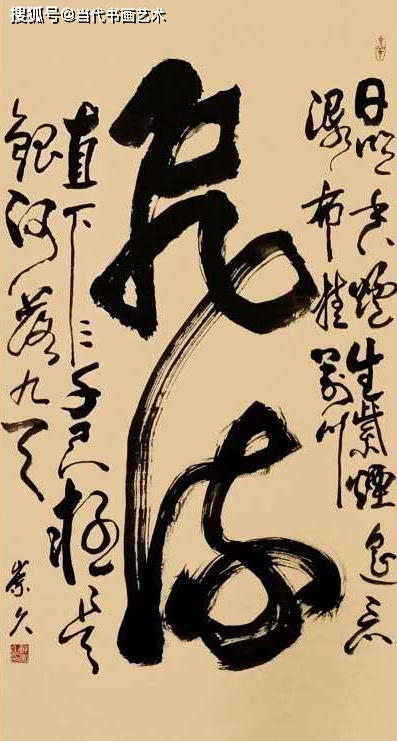 搜狐号@当代书画艺术
日照香爐生紫煙遥看
瀑布挂前川
飛流
直下三千尺疑是
銀河落九天
崇久